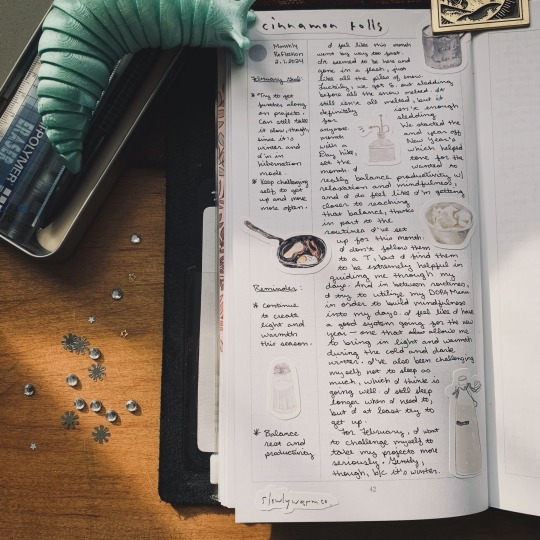 cinnamon rolls
Monthly
Reflection
2.1.2024
February Goal:
* Try to get
further along
on projects.
Can still take
it slow, though,
since it's
winter and
I'm in
hibernation
mode.
* Keep challenging
self to get
up and move
more often.
Reminders:
* Continue
to create
light and
warmth
this season.
* Balance
rest and
productivity.
I feel like this month
went by way too fast.
It seemed to be here and
gone in a flash, just
like all the piles of snow.
Luckily, we got S. out sledding
before all the snow melted. It
still isn't all melted, but it
definitely isn't enough
for sledding
anymore. We started the
month and year off
with a New Year's
Day hike, which helped
set the tone for the
month. I wanted to
really balance productivity w/
relaxation and mindfulness,
and I do feel like I'm getting
closer to reaching
that balance, thanks
in part to the
routines I've set
up for this month.
I don't follow them
to a T, but I find them
to be extremely helpful in
guiding me through my
days. And in between routines,
I try to utilize my DORA Menu
in order to build mindfulness
into my days. I feel like I have
a good system going for the new
year – one that also allows me
to bring in light and warmth
during the cold and dark
winter. I've also been challenging
myself not to sleep as
much, which I think is
going well. I still sleep
longer when I need to,
but I at least try to
get up.
For February, I want
to challenge myself to
take my projects more
seriously. Gently,
though, b/c it's winter.
42
slowlywarmco
POLYMER